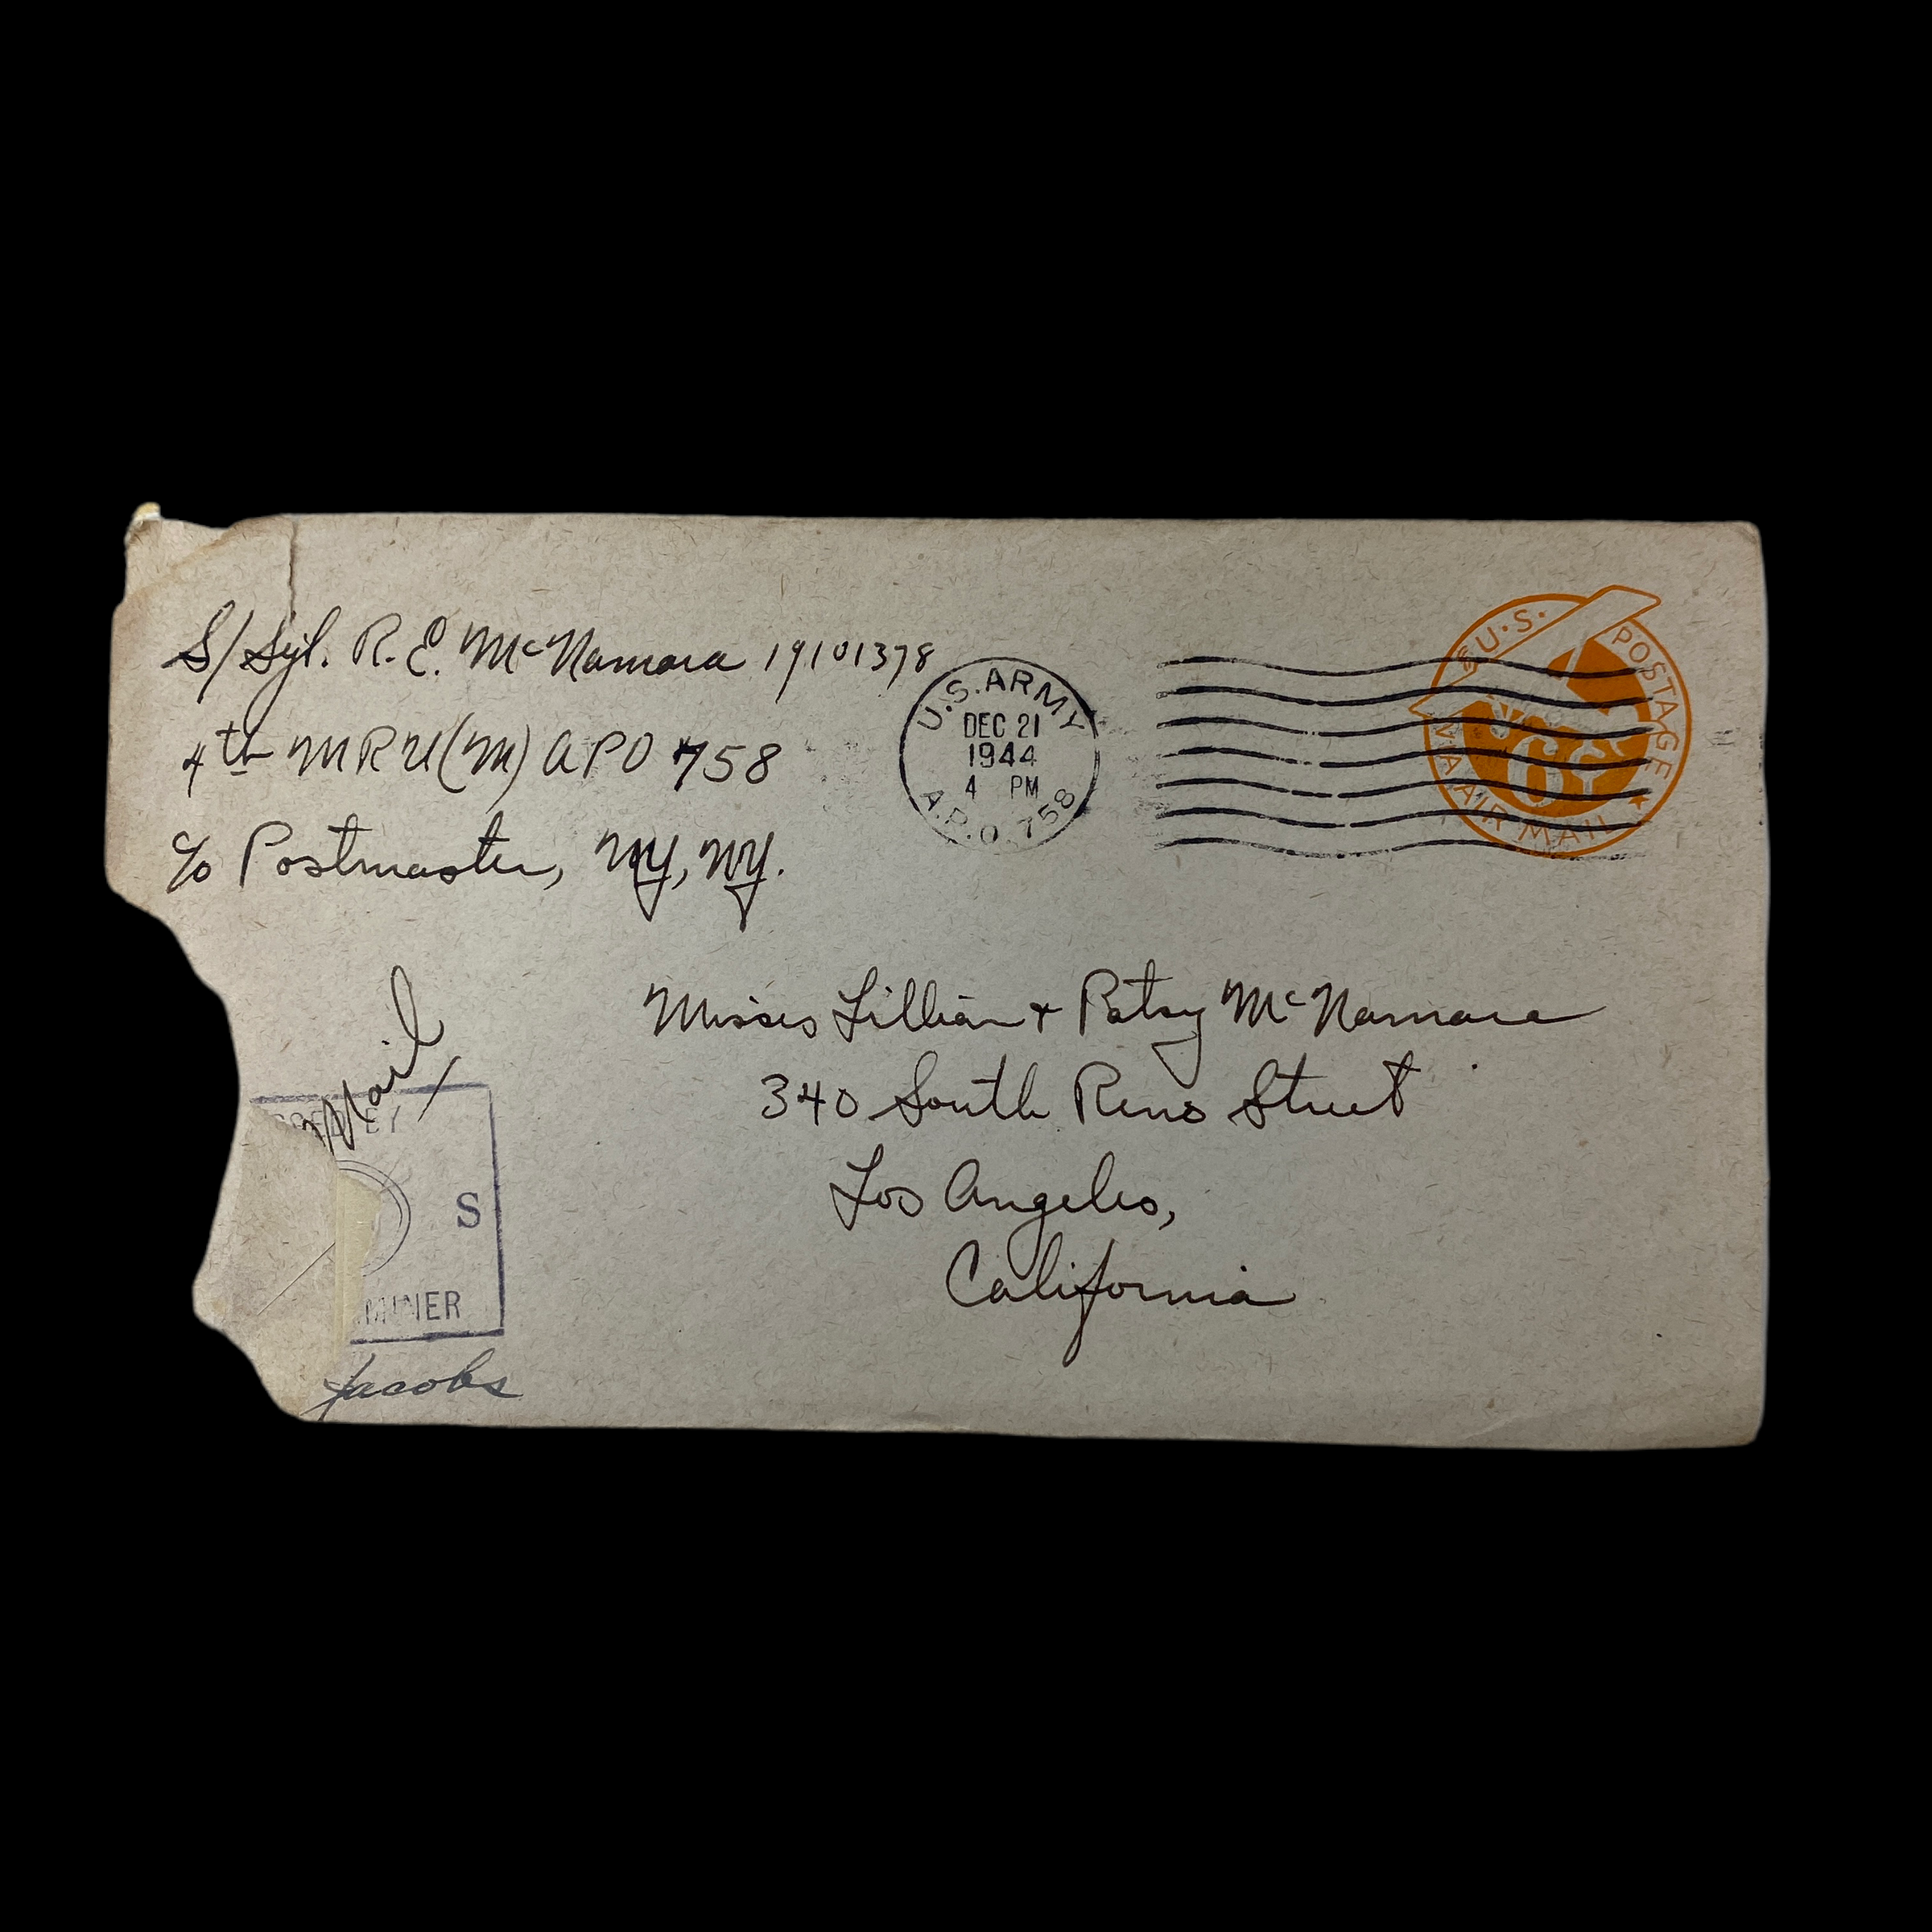 S/Sgt. R. E. McNamara 19101378
4th MRU(M) APO 758
c/o Postmaster, NY, NY.
U.S. ARMY
DEC 21
1944
4 PM
A.P.O. 758
U.S. POSTAGE
6¢
VIA AIR MAIL
Misses Lillian + Patsy McNamara
340 South Reno Street
Los Angeles,
California
Mail
S
Jacobs